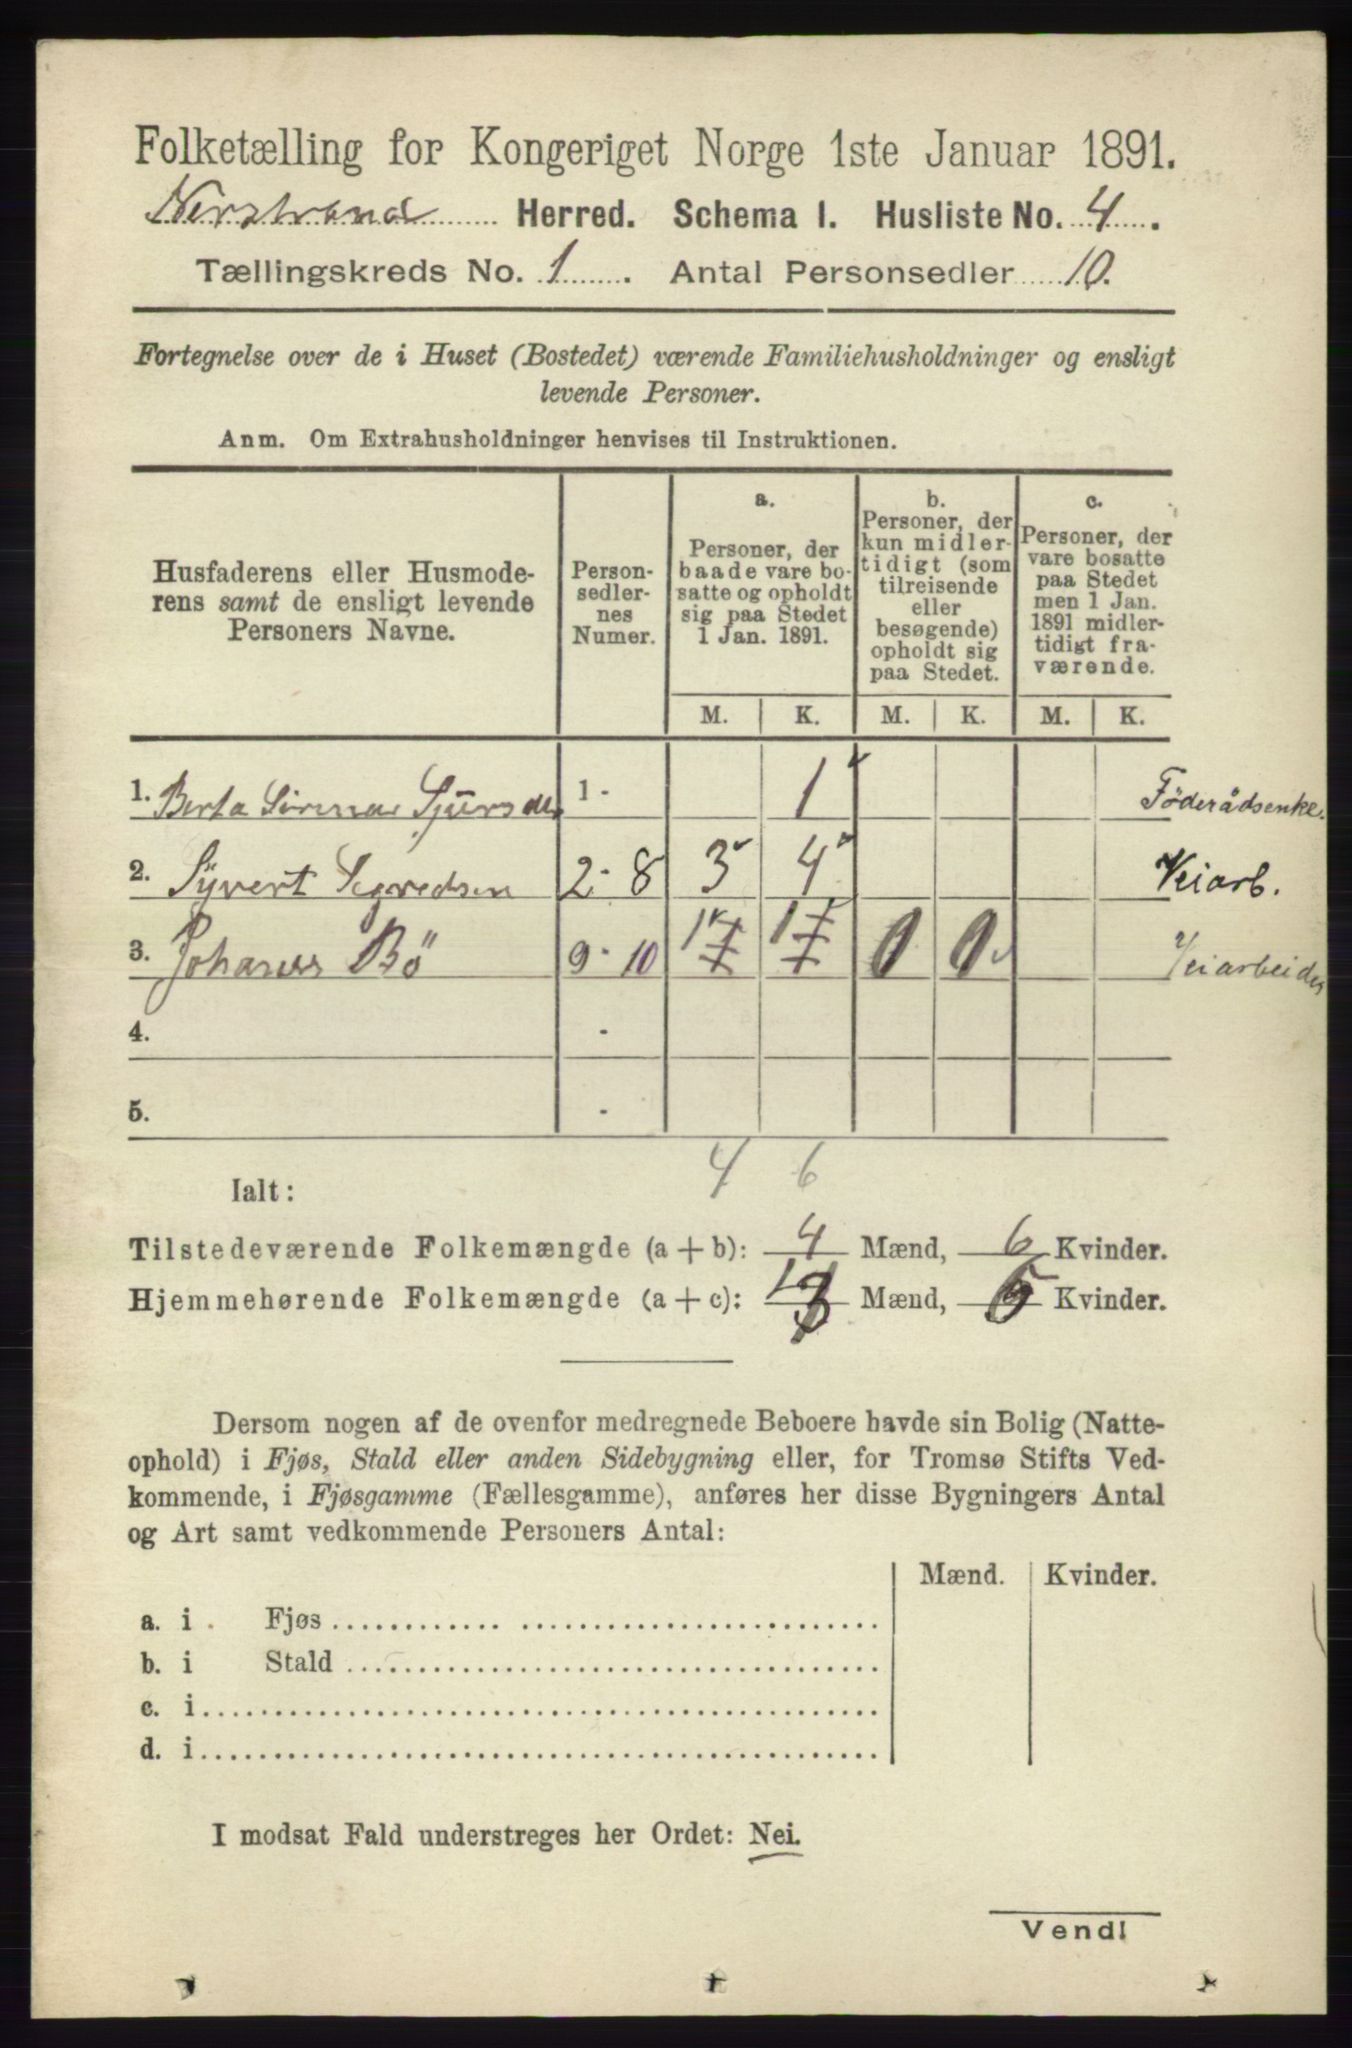 Folketælling for Kongeriget Norge 1ste Januar 1891.
Nerstrand Herred. Schema I. Husliste No. 4.
Tællingskreds No. 1. Antal Personsedler 10.
Fortegnelse over de i Huset (Bostedet) værende Familiehusholdninger og ensligt
levende Personer.
Anm. Om Extrahusholdninger henvises til Instruktionen.
Husfaderens eller Husmode-
rens samt de ensligt levende
Personers Navne.
Person-
sedler-
nes
Numer.
a.
Personer, der
baade vare bo-
satte og opholdt
sig paa Stedet
1 Jan. 1891.
b.
Personer, der
kun midler-
tidigt (som
tilreisende
eller
besøgende)
opholdt sig
paa Stedet.
c.
Personer, der
vare bosatte
paa Stedet
men 1 Jan.
1891 midler-
tidigt fra-
værende.
M. K. M. K. M. K.
1. Berta Sjursdtr 1 - 1 Föderådsenke.
2. Syvert 2 - 8 3 4 Veiarb.
3. Johanes Bö 9 - 10 1 1 0 0 Veiarbeider
4. -
5. -
4 6
Ialt:
Tilstedeværende Folkemængde (a + b): 4 Mænd, 6 Kvinder.
Hjemmehørende Folkemængde (a + c): Mænd, Kvinder.
Dersom nogen af de ovenfor medregnede Beboere havde sin Bolig (Natte-
ophold) i Fjøs, Stald eller anden Sidebygning eller, for Tromsø Stifts Ved-
kommende, i Fjøsgamme (Fællesgamme), anføres her disse Bygningers Antal
og Art samt vedkommende Personers Antal:
Mænd. Kvinder.
a. i Fjøs
b. i Stald
c. i
d. i
I modsat Fald understreges her Ordet: Nei.
Vend!